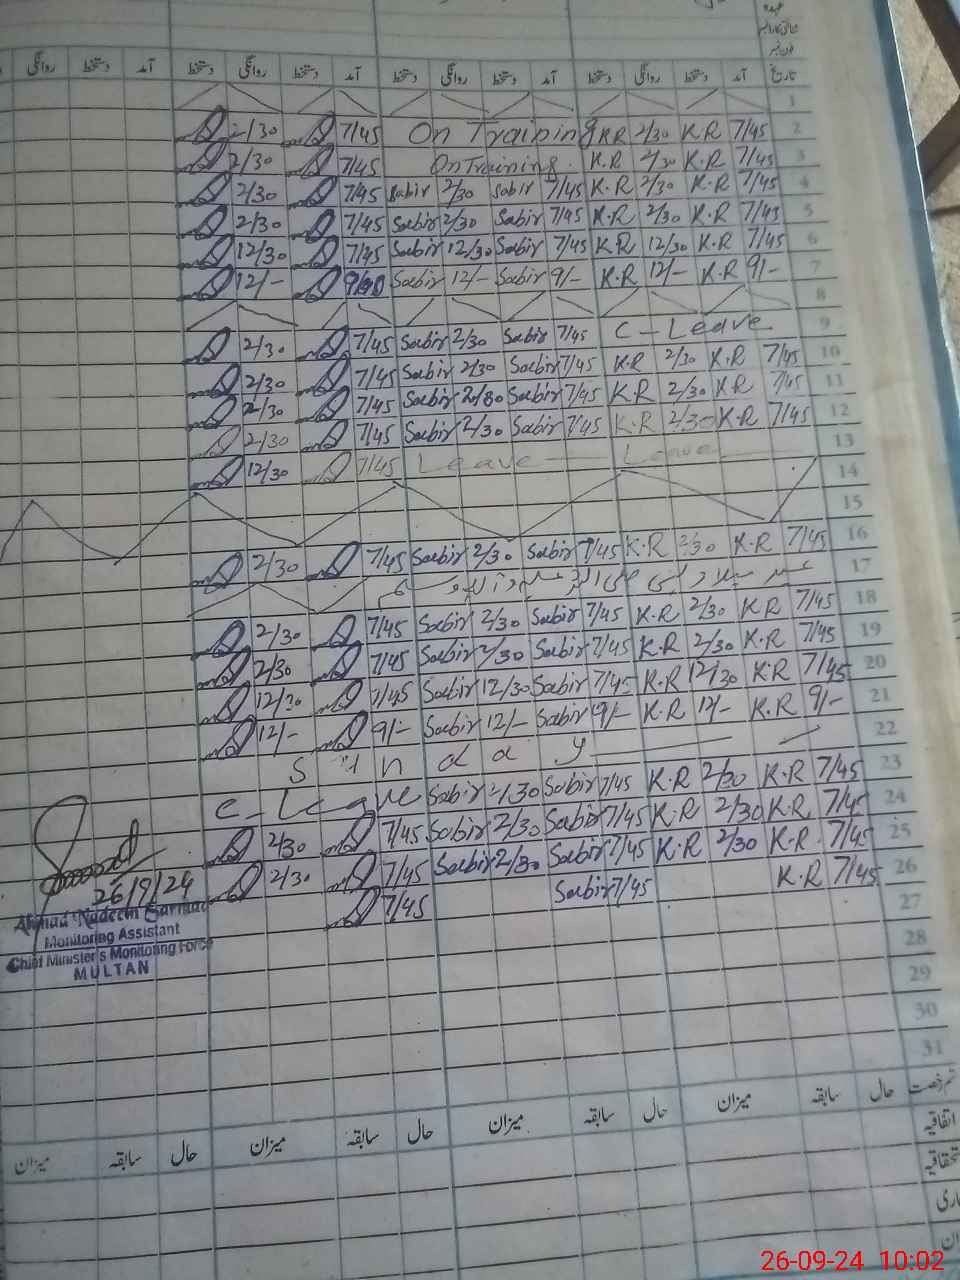 عہدہ
تاریخ آمد دستخط روانگی دستخط آمد دستخط روانگی دستخط آمد دستخط روانگی دستخط آمد دستخط روانگی
1
2 7/45 K.R 2/30 K.R On Training 7/45 2/30
3 7/45 K.R 2/30 K.R On Training 7/45 2/30
4 7/45 K.R 2/30 K.R 7/45 Sabir 2/30 Sabir 7/45 2/30
5 7/45 K.R 2/30 K.R 7/45 Sabir 2/30 Sabir 7/45 2/30
6 7/45 K.R 12/30 K.R 7/45 Sabir 12/30 Sabir 7/45 12/30
7 9/- K.R 12/- K.R 9/- Sabir 12/- Sabir 12/-
8
9 C - Leave 7/45 Sabir 2/30 Sabir 7/45 2/30
10 7/45 K.R 2/30 K.R 7/45 Sabir 2/30 Sabir 7/45 2/30
11 7/45 K.R 2/30 K.R 7/45 Sabir 2/30 Sabir 7/45 2/30
12 7/45 K.R 2/30 K.R 7/45 Sabir 2/30 Sabir 7/45 2/30
13 Leave Leave 7/45 12/30
14
15
16 7/45 K.R 2/30 K.R 7/45 Sabir 2/30 Sabir 7/45 2/30
17 عید میلاد النبی صلی اللہ علیہ وآلہ وسلم
18 7/45 K.R 2/30 K.R 7/45 Sabir 2/30 Sabir 7/45 2/30
19 7/45 K.R 2/30 K.R 7/45 Sabir 2/30 Sabir 7/45 2/30
20 7/45 K.R 12/30 K.R 7/45 Sabir 12/30 Sabir 7/45 12/30
21 9/- K.R 12/- K.R 9/- Sabir 12/- Sabir 9/- 12/-
22 Sunday
23 7/45 K.R 2/30 K.R 7/45 Sabir 2/30 Sabir C-Leave
24 7/45 K.R 2/30 K.R 7/45 Sabir 2/30 Sabir 7/45 2/30
25 7/45 K.R 2/30 K.R 7/45 Sabir 2/30 Sabir 7/45 2/30
26 7/45 K.R 7/45 Sabir 7/45
27
28
29
30
31
26/9/24
Ahmad Nadeem Sarmad
Monitoring Assistant
Chief Minister's Monitoring Force
MULTAN
حال سابقہ میزان حال سابقہ میزان حال سابقہ میزان حال سابقہ میزان
اتفاقیہ
26-09-24 10:02